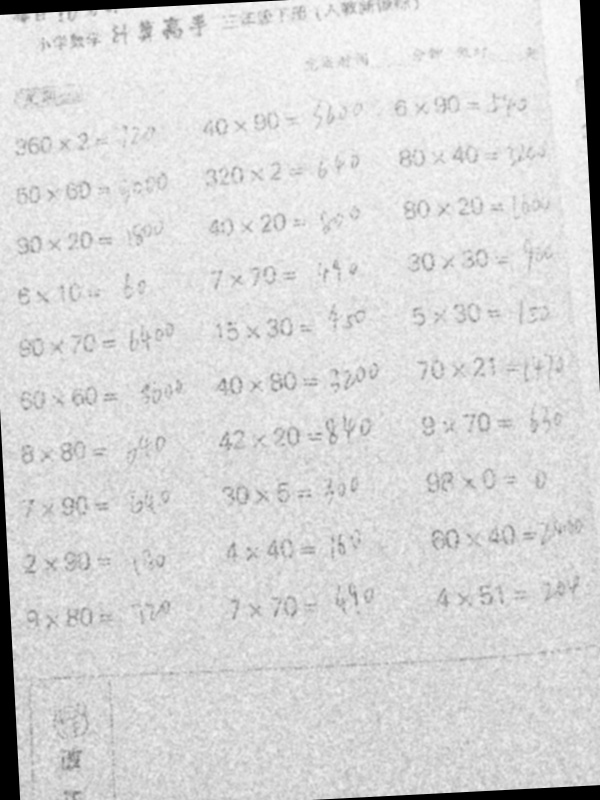 小学数学 计算高手 三年级下册（人教
360×2= 720 40×90= 3600 6×90= 540
50×60= 3000 320×2= 640 80×40= 3200
90×20= 1800 40×20= 800 80×20= 1600
6×10= 60 7×70= 490 30×30= 900
90×70= 6400 15×30= 450 5×30= 150
60×60= 3000 40×80= 3200 70×21= 1470
8×80= 640 42×20= 840 9×70= 630
7×90= 640 30×5= 300 98×0= 0
2×90= 180 4×40= 160 60×40= 2400
9×80= 720 7×70= 490 4×51= 204